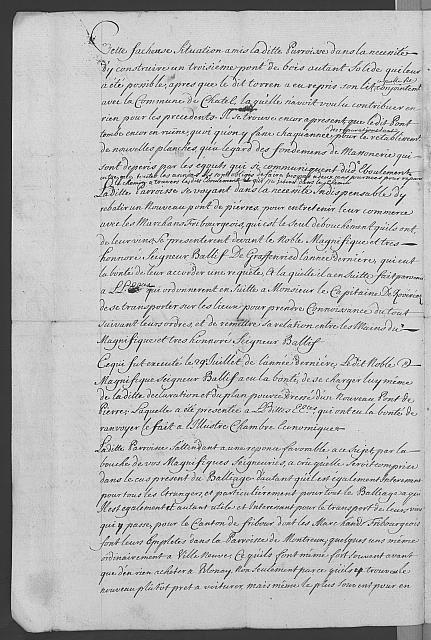 Cette facheuse Situation a mis la ditte Parroisse dans la necessité
d'y construire un troisième pont de bois autant Solide qu'il leur
a été possible, apres que le dit torren a eu repris son lit, conjointent
avec la Commune de Chatel, laquelle n'avoit voulu contribuer en
rien pour les precedents. Il se trouve encor apresent que le dit Pont
tombe encor en ruine, quoi qu'on y fasse chaque année
de nouvelles planches qu'a l'egard des fondemens de Massonerie qui
sont deperis par les egouts, qui si communiquent
La ditte Parroisse Se voyant dans la necessité Indispensable d'y
rebatir un Nouveau pont de pierres, pour entretenir leur commerce
avec les Marchans Fribourgeois, qui est le Seul debouchement qu'ils ont
de leur vin, Se presenterent devant le Noble Magnifique et tres-
honnoré Seigneur Ballif De Graffenried l'année derniere, qui eut
la bonté de leur accorder une requête, Et la quelle ils ensuitte fait parvenir
à qui ordonnerent en Suitte à Monsieur le Capitaine De
de se transporter sur les lieux pour prendre Connoissance du tout
suivant leurs ordres, et de remettre sa relation entre les Mains du
Magnifique et tres honnoré Seigneur Ballif
Ce qui fut executé le 29 Juillet de l'année derniére, Le dit Noble &
Magnifique Seigneur Ballif a eu la bonté de se charger luy même
de la ditte declaration et du plan pour dressé d'un Nouveau Pont de
Pierre, Laquelle a eté presentée à Leditte qui ont eu la bonté de
ranvoyer ce fait à l'Illustre Chambre Economique
La ditte Parroisse S'attendant a une reponce favorable a ce Sujet par la
bouche de vos Magnifiques Seigneuries, a cru quelle Seroit comprise
dans le cas present du Balliage d'autant quil est egalement Interessent
pour tous les Etrangers, et particulierement pour tout le Balliage
Il est egalement Et autant utile et Interessant pour le transport de leur vin
qui y passe, pour le Canton de fribourg dont les Marchands Fribourgeois
font leurs Empletes dans la Parroisse de Montreux, quelques uns même
ordinairement a Ville Neuve, Ce quils font même fort Souvent avant
que d'en rien acheter à Blonay, Non Seulement parce quils y trouve le
nouveau plutôt pret a voiturer, mais même le plus Souvent pour en